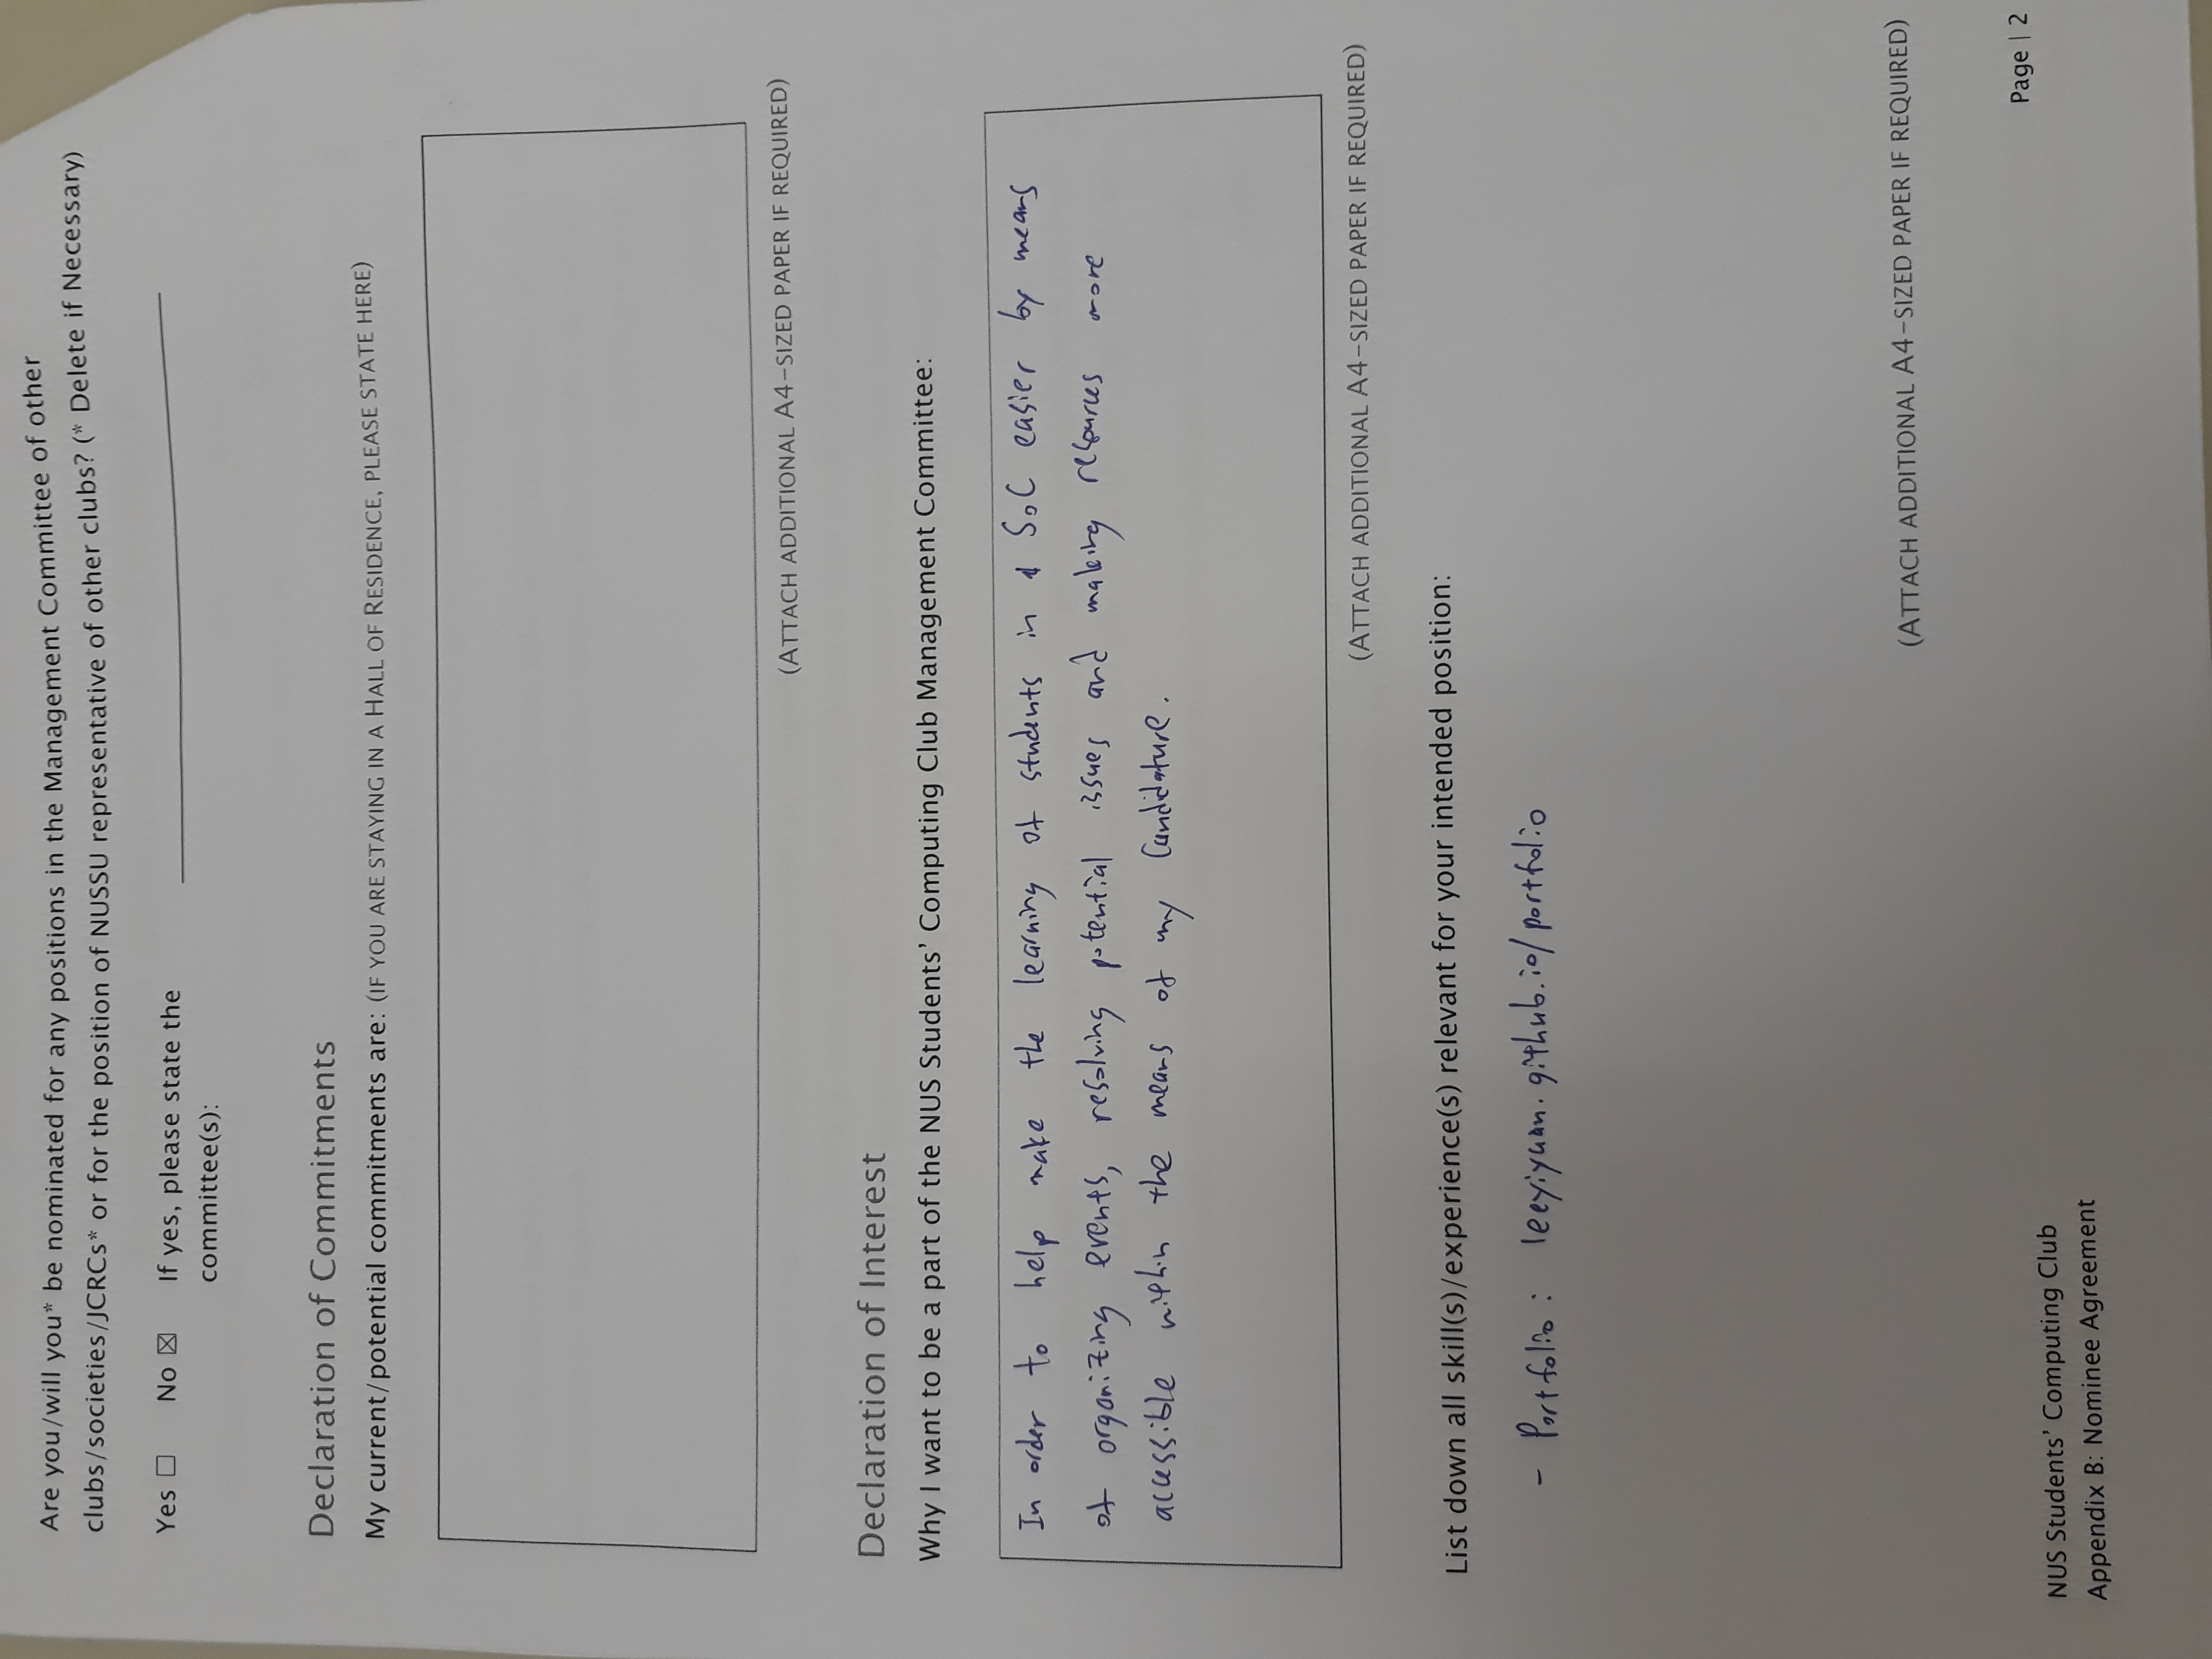 Are you/will you* be nominated for any positions in the Management Committee of other
clubs/societies/JCRCs* or for the position of NUSSU representative of other clubs? (* Delete if Necessary)
Yes ☐ No ☒ If yes, please state the
committee(s):
Declaration of Commitments
My current/potential commitments are: (IF YOU ARE STAYING IN A HALL OF RESIDENCE, PLEASE STATE HERE)
(ATTACH ADDITIONAL A4-SIZED PAPER IF REQUIRED)
Declaration of Interest
Why I want to be a part of the NUS Students' Computing Club Management Committee:
In order to help make the learning of students in SoC easier by means
of organizing events, resolving potential issues and making resources more
accessible within the means of my Candidature.
(ATTACH ADDITIONAL A4-SIZED PAPER IF REQUIRED)
List down all skill(s)/experience(s) relevant for your intended position:
- Portfolio: leeyiyuan.github.io/portfolio
(ATTACH ADDITIONAL A4-SIZED PAPER IF REQUIRED)
Page | 2
NUS Students' Computing Club
Appendix B: Nominee Agreement